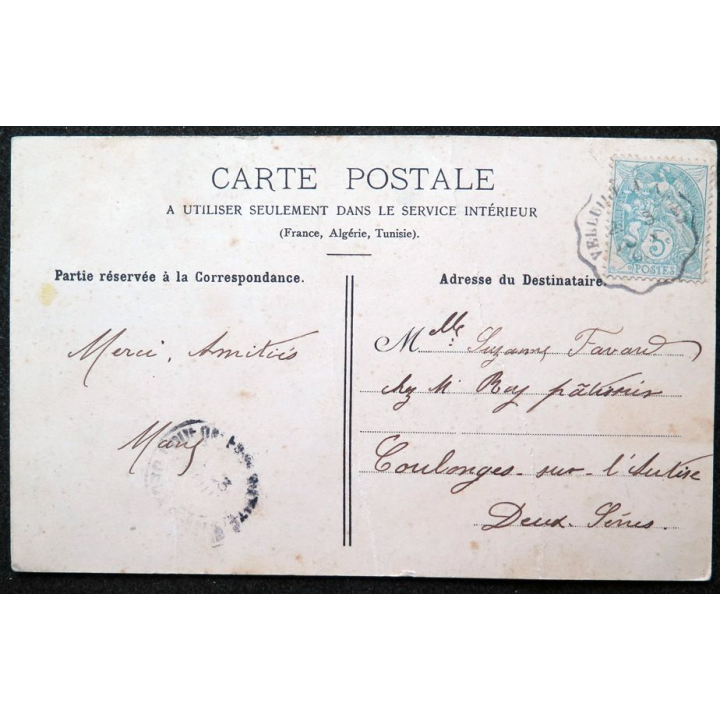 CARTE POSTALE
A UTILISER SEULEMENT DANS LE SERVICE INTÉRIEUR
(France, Algérie, Tunisie).
Partie réservée à la Correspondance.
Merci, Amitiés
Adresse du Destinataire.
Melle. Suzanne Favard
chez Mr Roy pâtissier
Coulonges-sur-l'Autise
Deux-Sèvres.
5c
POSTES